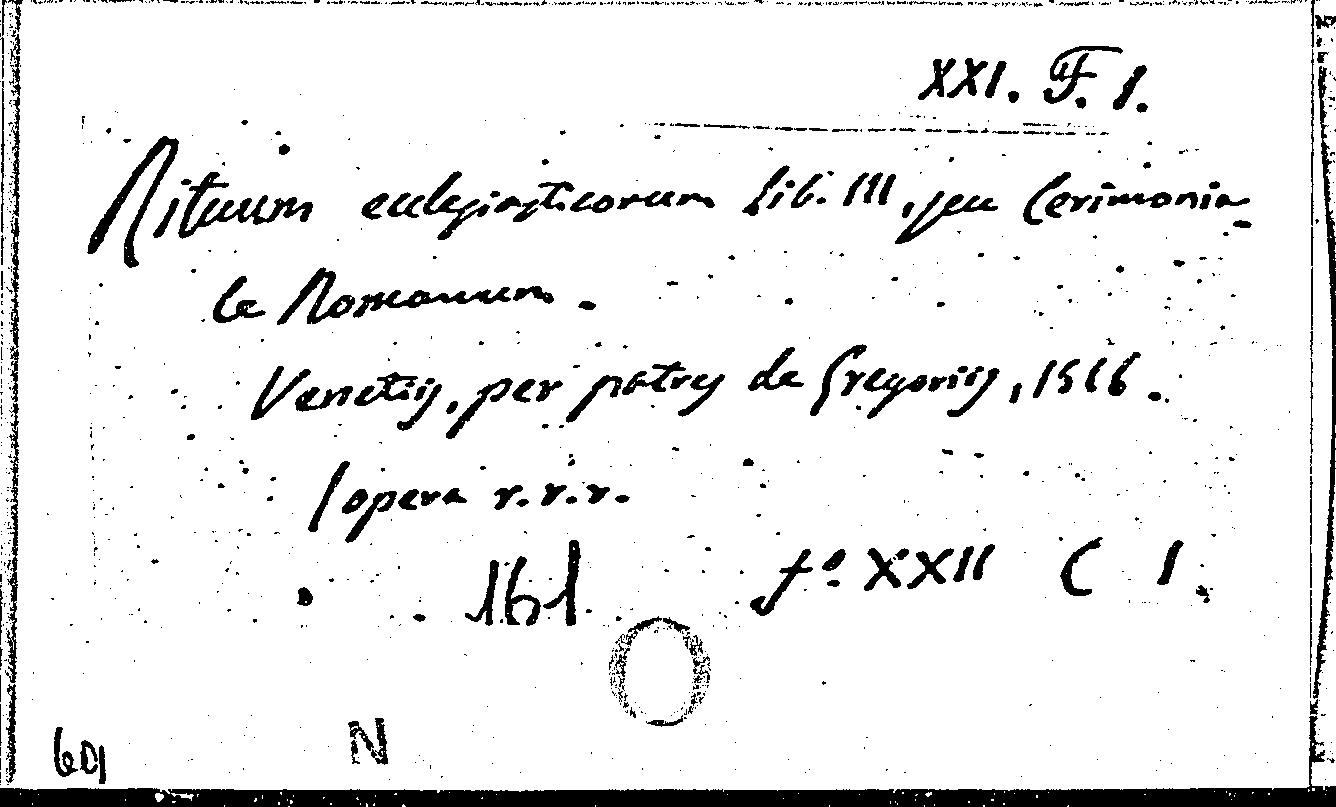 XXI. F. 1.
Rituum ecclesiasticorum Lib. III, seu Cerimonia-
le Romanum.
Venetiis, per patres de Gregoriis, 1516.
(opera r.r.r.
161 fº XXII C 1.
601 N